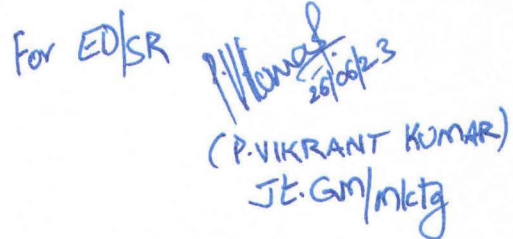 For ED/SR
P.V Kumar
26/06/23
(P.VIKRANT KUMAR)
Jt.Gm/mktg